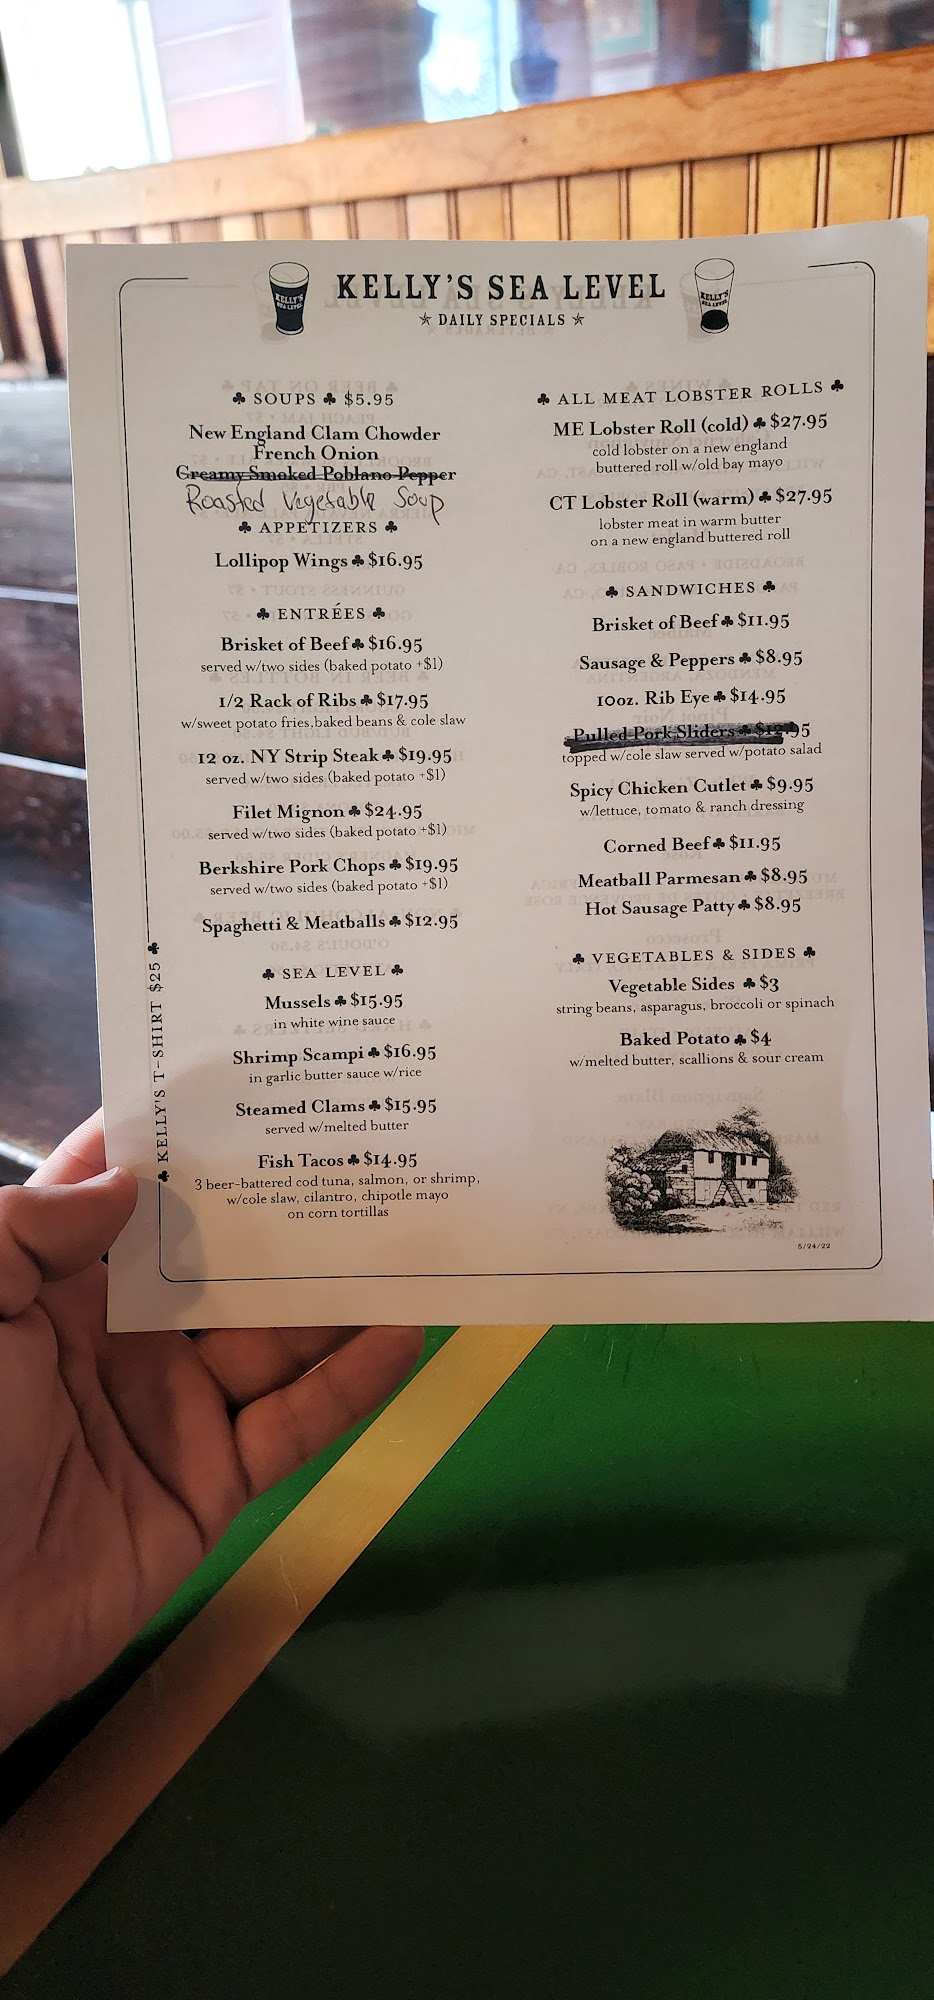 KELLY'S SEA LEVEL
★ DAILY SPECIALS ★
♣ SOUPS ♣ $5.95
New England Clam Chowder
French Onion
Creamy Smoked Poblano Pepper
Roasted Vegetable Soup
♣ APPETIZERS ♣
Lollipop Wings ♣ $16.95
♣ ENTRÉES ♣
Brisket of Beef ♣ $16.95
served w/two sides (baked potato +$1)
1/2 Rack of Ribs ♣ $17.95
w/sweet potato fries,baked beans & cole slaw
12 oz. NY Strip Steak ♣ $19.95
served w/two sides (baked potato +$1)
Filet Mignon ♣ $24.95
served w/two sides (baked potato +$1)
Berkshire Pork Chops ♣ $19.95
served w/two sides (baked potato +$1)
Spaghetti & Meatballs ♣ $12.95
♣ SEA LEVEL ♣
Mussels ♣ $15.95
in white wine sauce
Shrimp Scampi ♣ $16.95
in garlic butter sauce w/rice
Steamed Clams ♣ $15.95
served w/melted butter
Fish Tacos ♣ $14.95
3 beer-battered cod tuna, salmon, or shrimp,
w/cole slaw, cilantro, chipotle mayo
on corn tortillas
♣ KELLY'S T-SHIRT $25 ♣
♣ ALL MEAT LOBSTER ROLLS ♣
ME Lobster Roll (cold) ♣ $27.95
cold lobster on a new england
buttered roll w/old bay mayo
CT Lobster Roll (warm) ♣ $27.95
lobster meat in warm butter
on a new england buttered roll
♣ SANDWICHES ♣
Brisket of Beef ♣ $11.95
Sausage & Peppers ♣ $8.95
10oz. Rib Eye ♣ $14.95
Pulled Pork Sliders ♣ $12.95
topped w/cole slaw served w/potato salad
Spicy Chicken Cutlet ♣ $9.95
w/lettuce, tomato & ranch dressing
Corned Beef ♣ $11.95
Meatball Parmesan ♣ $8.95
Hot Sausage Patty ♣ $8.95
♣ VEGETABLES & SIDES ♣
Vegetable Sides ♣ $3
string beans, asparagus, broccoli or spinach
Baked Potato ♣ $4
w/melted butter, scallions & sour cream
5/24/22